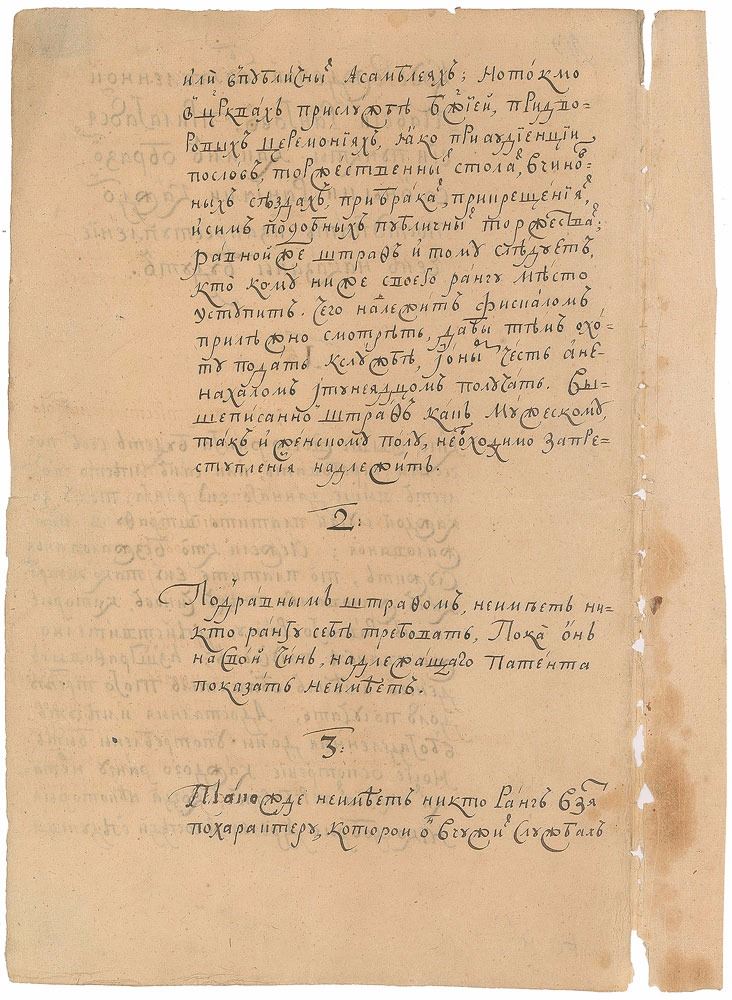 или впубличныⷯ Асамблеяхъ; Нотокмо
вцерквахъ прислужбѣ Бжїей, придво=
ровыхъ церемонїяхъ, яко приаудїенцїи
пословъ, торжественныⷯ столаⷯ, вчинов=
ныхъ съѣздахъ, прибракаⷯ, прикрещенїяⷯ,
исимъ подобныхъ публичныⷯ торжестваⷯ;
равной же штраѳъ итому слѣдуетъ,
кто кому ниже своего рангу мѣсто
уступитъ. чего належитъ фискаломъ
прилѣжно смотрѣть, дабы тѣмъ охо=
ту подать кслужбѣ, їонымъ честь ане=
нахаломъ їтунеядцомъ получать. Вы=
шеписанно штраѳъ какъ Мужескому,
такъ и женскому полу, необходимо запре=
ступленїя надлежитъ.
2:
Подравнымъ штраѳомъ, неимѣетъ ни=
кто рангу себѣ требовать, Пока онъ
насвой чинъ, надлежащаго Патента
показать неимѣетъ.
3:
Такожде неимѣетъ никто Рангъ взяⷮ
похарактеру, которои онъ вчужиⷯ Службахъ